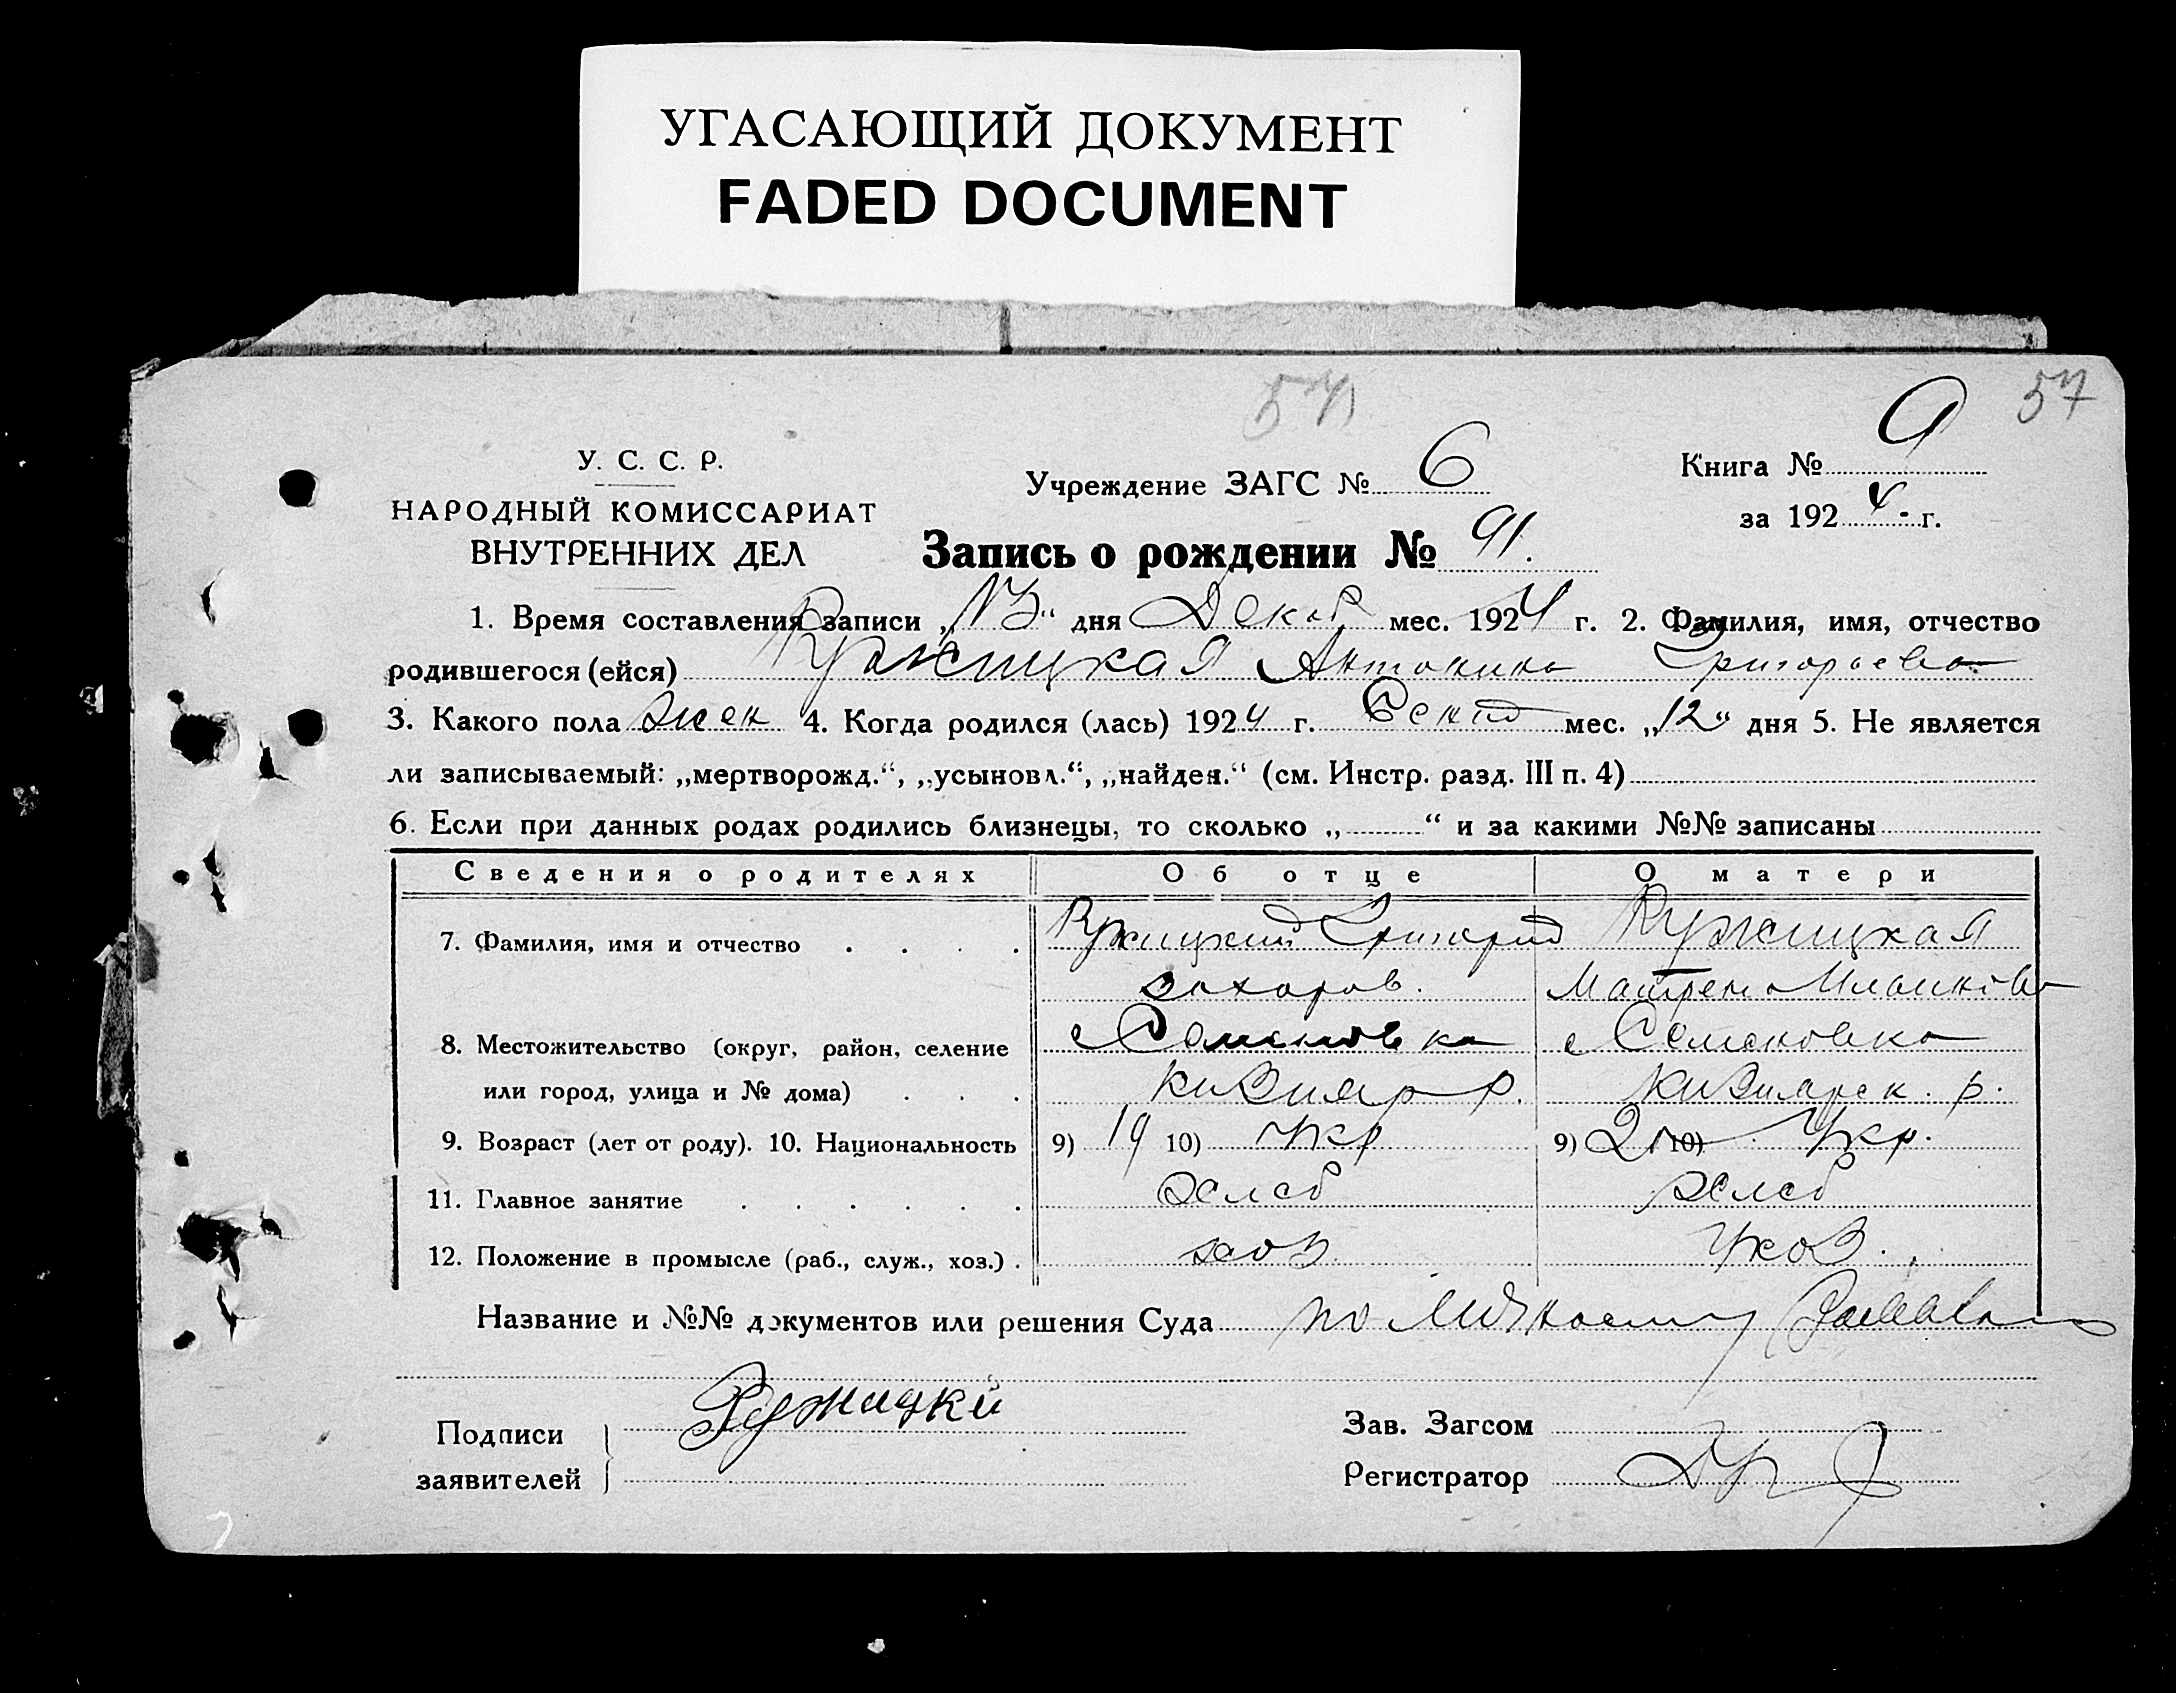 УГАСАЮЩИЙ ДОКУМЕНТ
FADED DOCUMENT
57
57
У. С. С. Р.
НАРОДНЫЙ КОМИССАРИАТ
ВНУТРЕННИХ ДЕЛ
Учреждение ЗАГС № 6
Книга № 9
за 1924 г.
Запись о рождении № 91.
1. Время составления записи „13“ дня Декаб мес. 1924 г. 2. Фамилия, имя, отчество
родившегося (ейся) Ружицкая Антонина Григорьевна
3. Какого пола жен 4. Когда родился (лась) 1924 г. Сент мес. „12“ дня 5. Не является
ли записываемый: „мертворожд.“, „усыновл.“, „найден.“ (см. Инстр. разд. III п. 4)
6. Если при данных родах родились близнецы, то сколько „ “ и за какими №№ записаны
Сведения о родителях Об отце О матери
7. Фамилия, имя и отчество Ружицкий Григорий Ружицкая
Захаров. Матрена
8. Местожительство (округ, район, селение с Семеновка с Семеновка
или город, улица и № дома) Кизияр р. Кизиярск. р.
9. Возраст (лет от роду). 10. Национальность 9) 19 10) Укр 9) 21 10) Укр.
11. Главное занятие хлеб хлеб
12. Положение в промысле (раб., служ., хоз.) хоз.
Название и №№ документов или решения Суда по личному
Подписи
заявителей
Ружицкй
Зав. Загсом
Регистратор